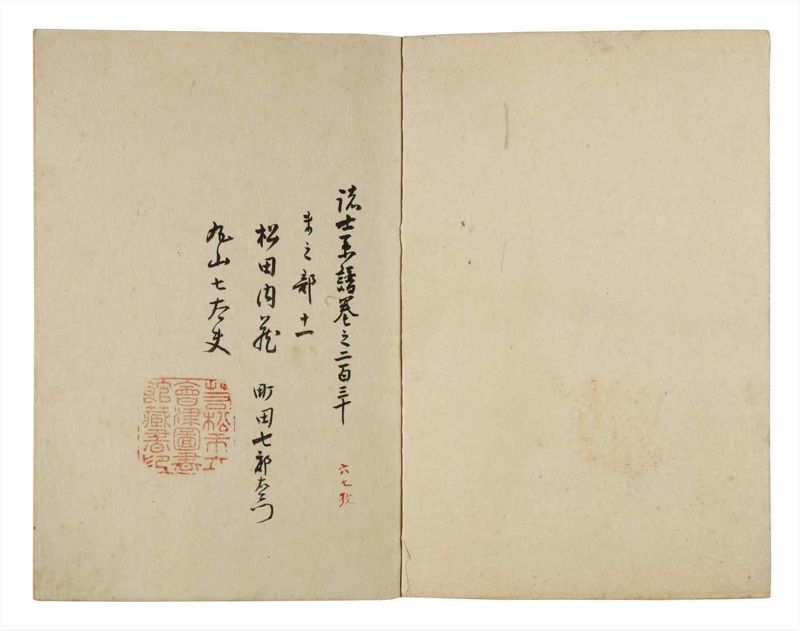 諸士系譜巻之二百三十
六七枚
ま之部 十一
松田内蔵
町田七郎左衛門
丸山七太夫
若松市立
會津圖書
館藏書印